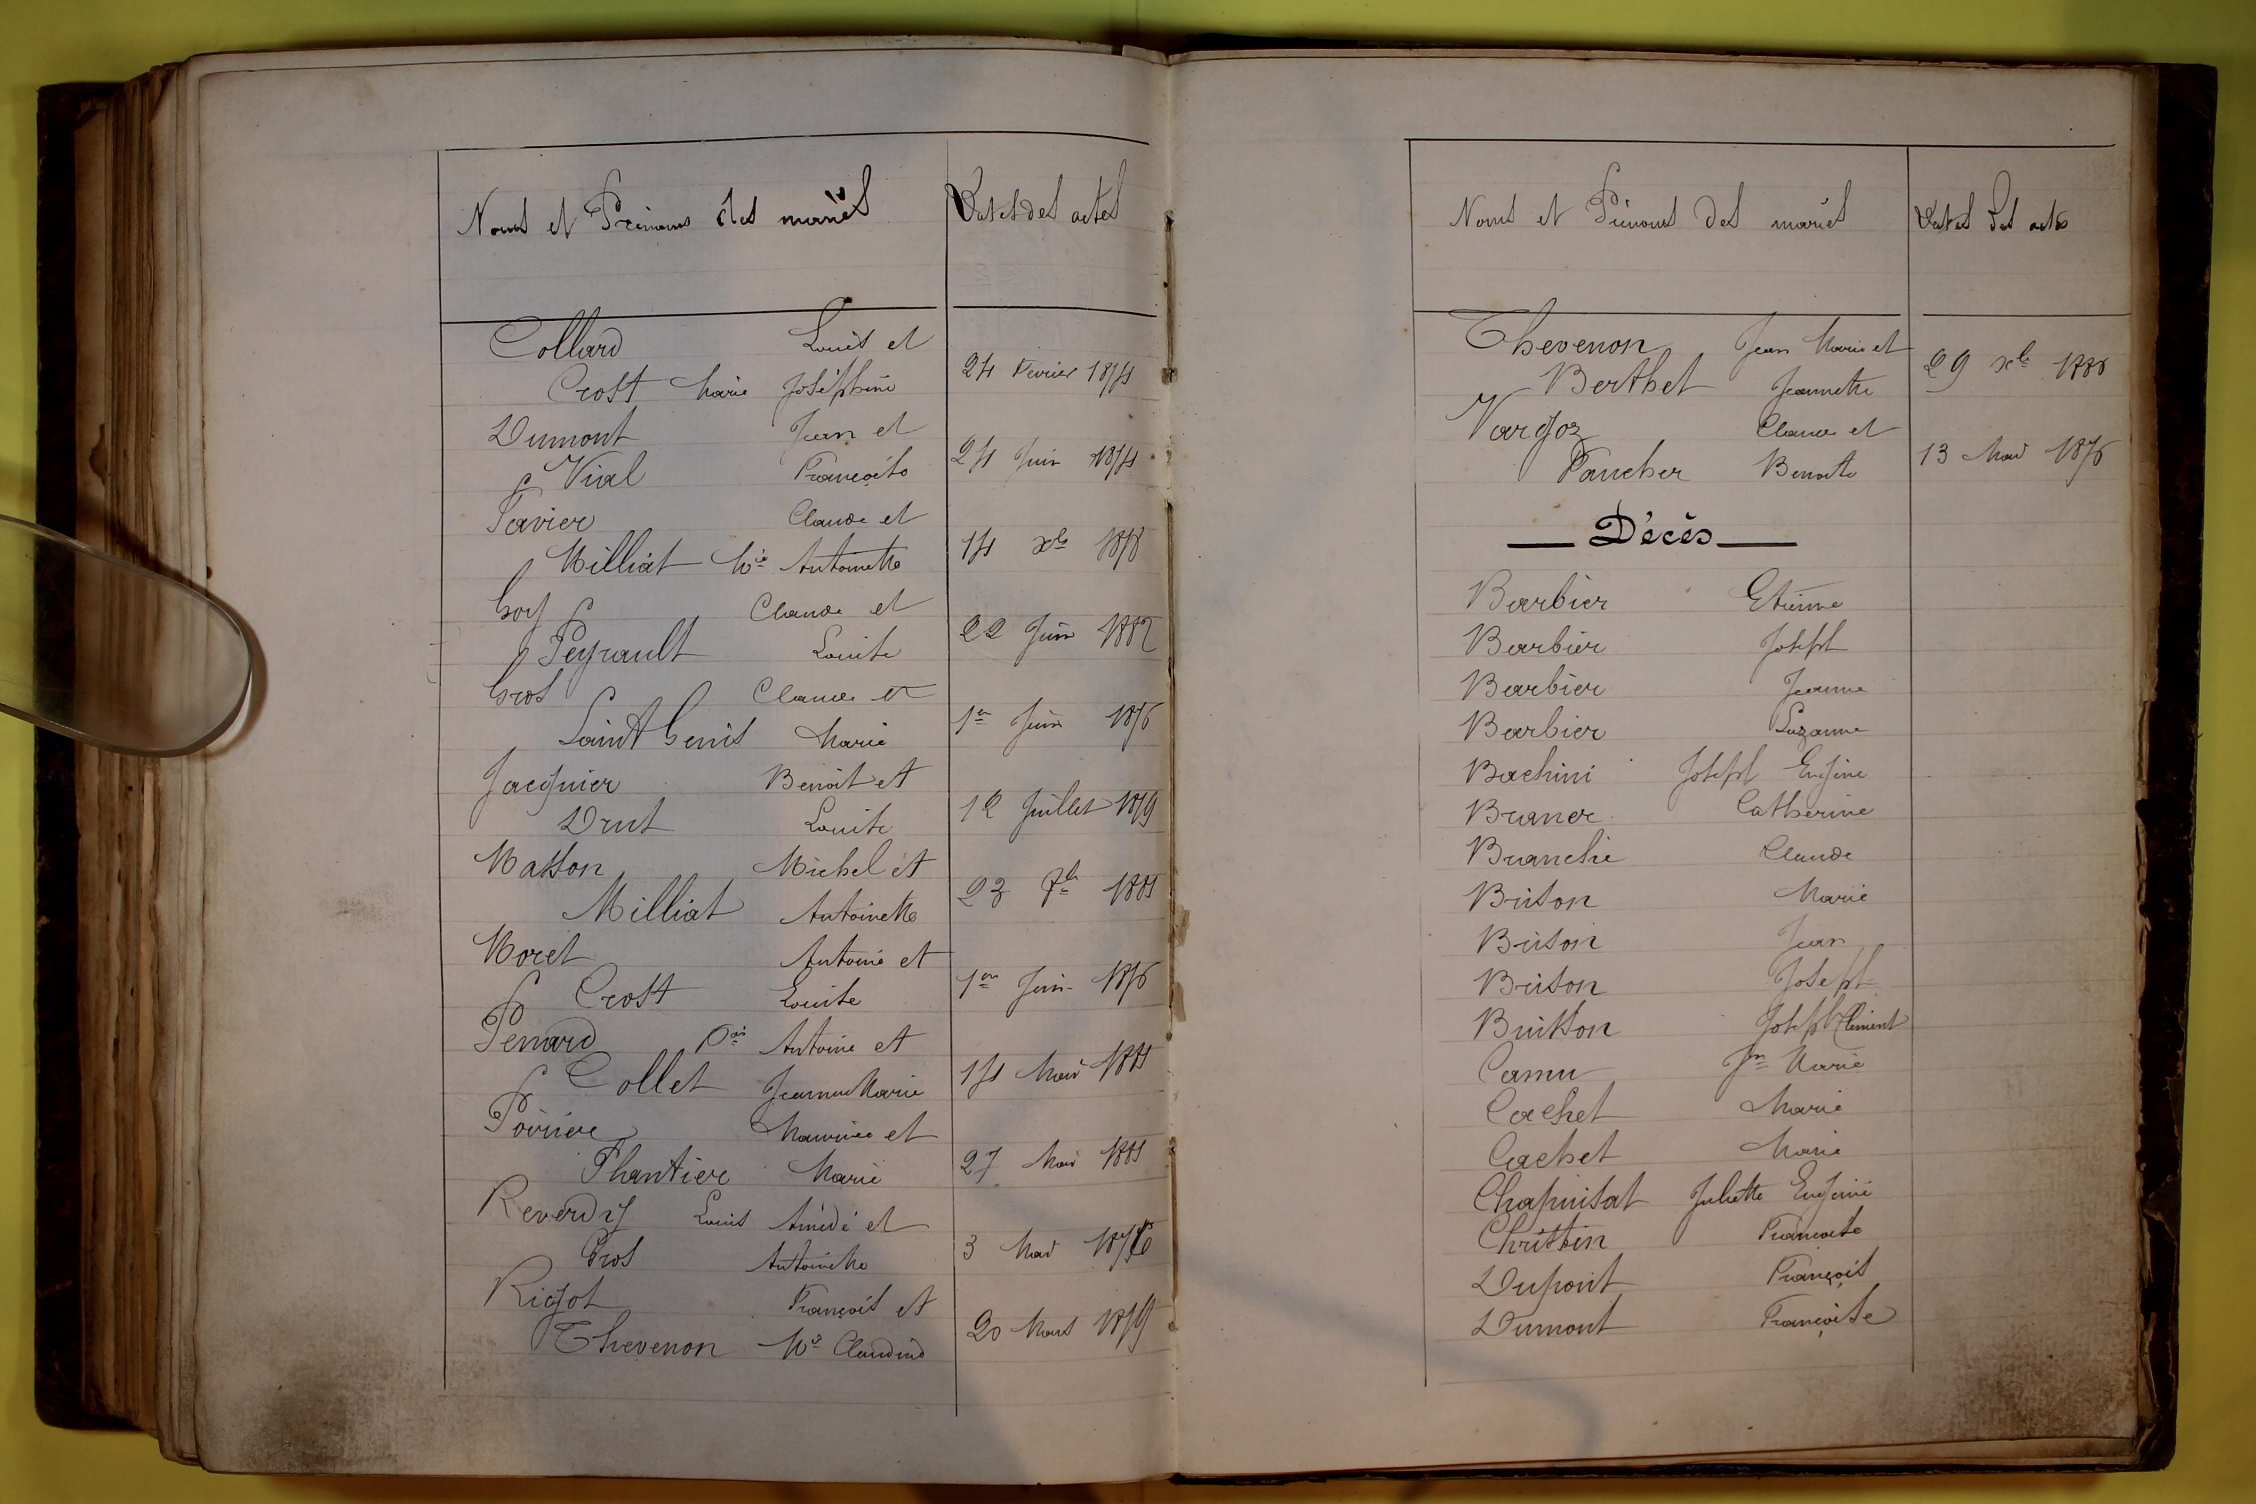 Noms et Prénoms des mariés Dates des actes
Collard Louis et
Crost Marie Joséphine 24 Février 1874
Dumont Jean et
Vial Françoise 24 Juin 1874
Favier Claude et
Milliat Mie Antoinette 14 xbre 1878
Goy Claude et
Peyrault Louise 22 Juin 1882
Gros Claude et
Saint Genis Marie 1er Juin 1876
Jacquier Benoit et
Drut Louise 12 Juillet 1879
Masson Michel et
Milliat Antoinette 23 1881
Moret Antoine et
Crost Louise 1er Juin 1876
Penard Antoine et
Collet Jeanne Marie 14 Mai 1881
Poirière Maurice et
Phantier Marie 27 Mai 1881
Reverdy Louis Amédé et
Gros Antoinette 3 Mai
Rigot François et
Thevenon Mie Claudine 20 Mars
Noms et Prénoms des mariés Dates des actes
Thevenon Jean Marie et
Berthet Jeannette 29 xbre
Vargoz Claude et
Pancher Benoite 13 Mai 1876
Décès
Barbier Etienne
Barbier Joseph
Barbier Jeanne
Barbier Suzanne
Bachini Joseph Engine
Braner Catherine
Branche Claude
Brison Marie
Brison Jean
Brison Joseph
Buisson Joseph Clément
Camu Jn Marie
Cachet Marie
Cachet Marie
Chapuisat Juliette Eugénie
Christin Françoise
Dupont François
Dumont Françoise